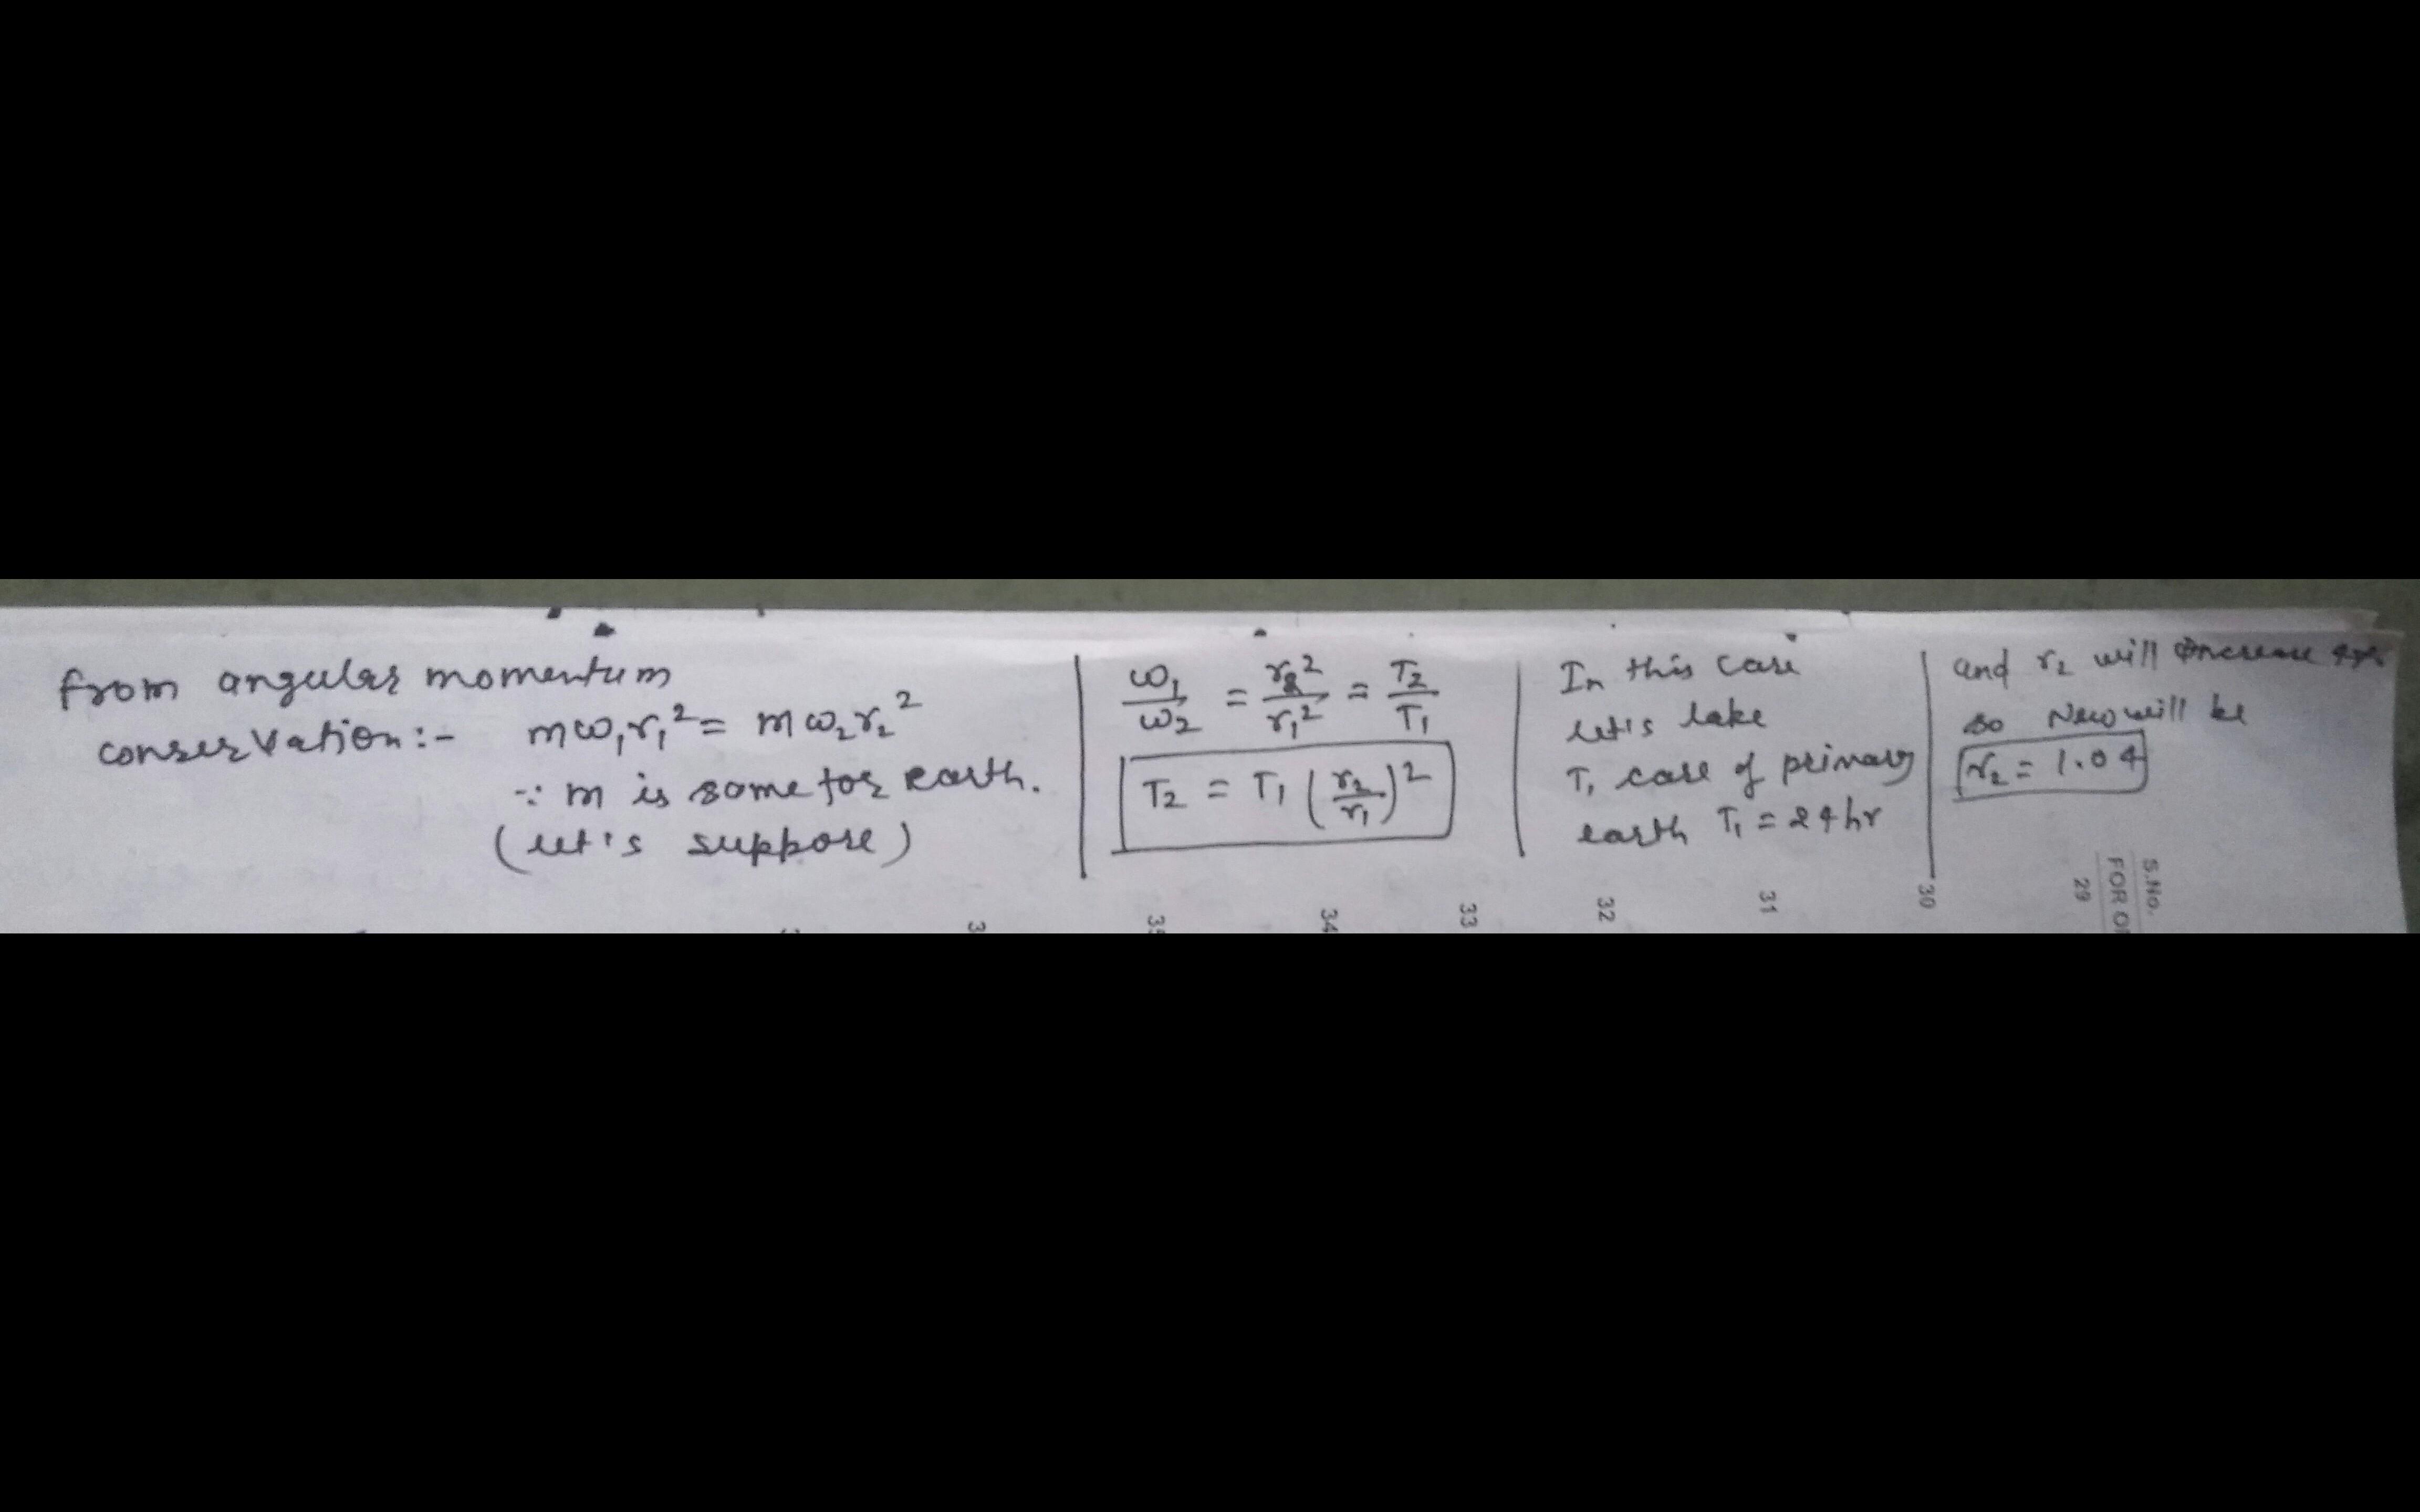 from angular momentum
conservation:- mω₁r₁² = mω₂r₂²
∵ m is same for earth.
(let's suppose)
ω₁/ω₂ = r₂²/r₁² = T₂/T₁
T₂ = T₁ (r₂/r₁)²
In this case
let's take
T₁ case of primary
earth T₁ = 24hr
and r₂ will increase
so New will be
r₂ = 1.04
34
33
32
31
30
29
FOR
S.No.